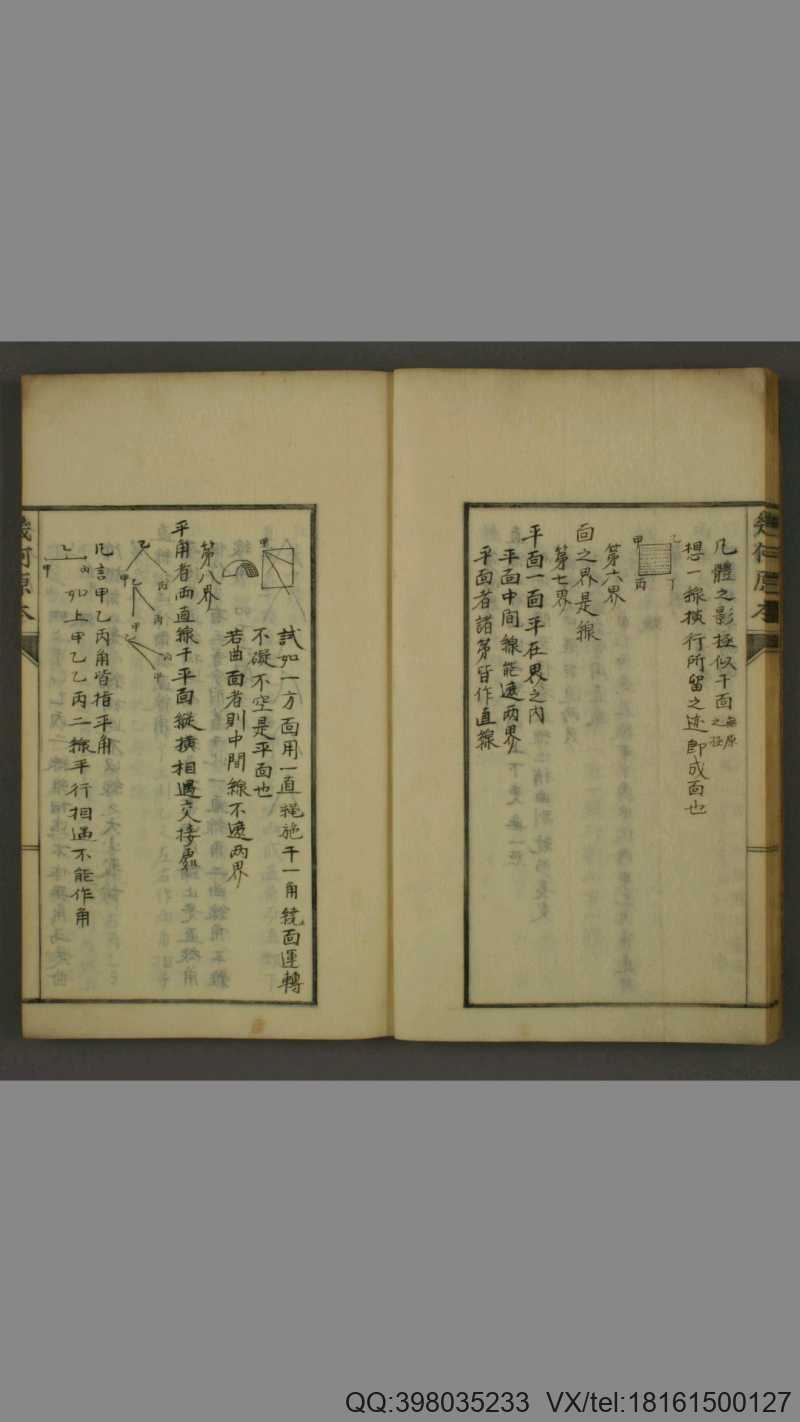 幾何原本
凡體之影極似于面無原之極
想一線橫行所留之迹即成面也
甲 乙
丙 丁
第六界
面之界是線
第七界
平面一面平在界之内
平面中間線能遮两界
平面者諸䓁皆作直線
甲
試如一方面用一直䋲施于一角繞面運轉
不礙不空是平面也
若曲面者則中間線不遮两界
第八界
平角者兩直線于平面縱橫相遇交接處
乙 甲 丙
乙 甲 丙
乙 丙 甲
凡言甲乙丙角皆指平角
乙 丙 甲
如上甲乙乙丙二線平行相遇不能作角
幾何原本
QQ:398035233 VX/tel:18161500127